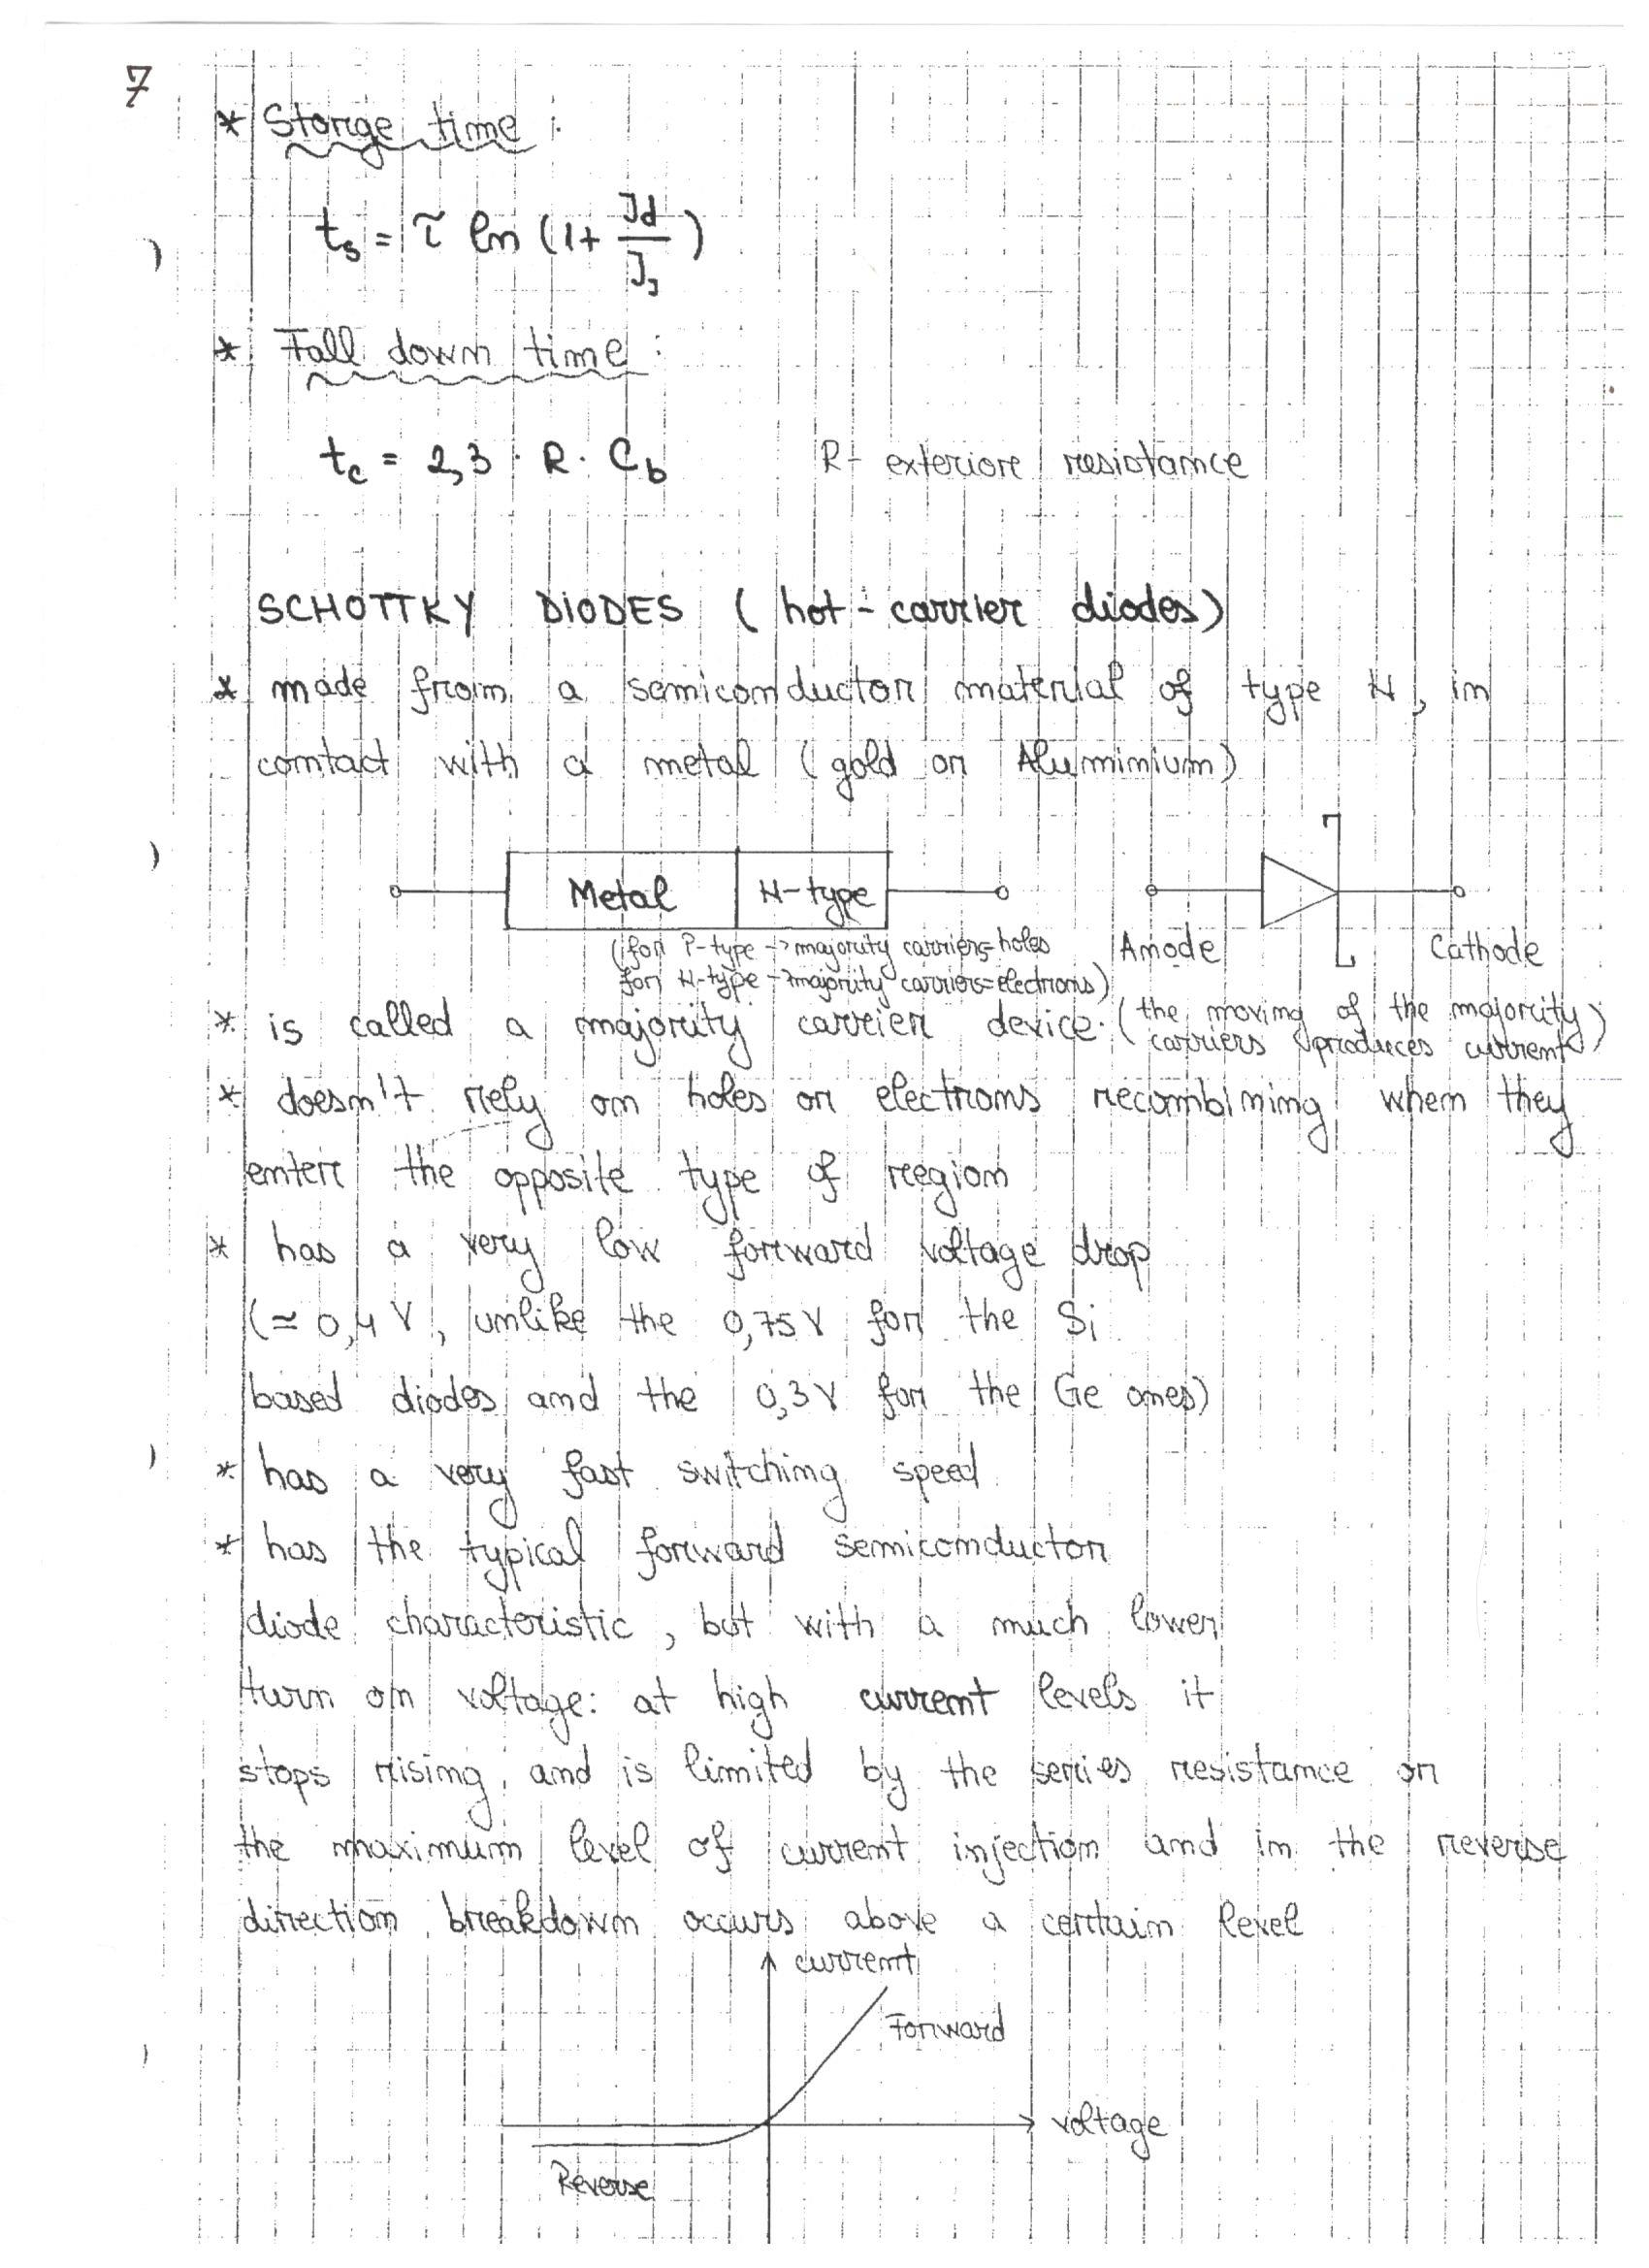 7
* Storge time :
ts = τ ln (1+ Jd/Js)
* Fall down time :
tc = 2,3 · R · Cb R- exteriore resistance
SCHOTTKY DIODES ( hot - carrier diodes)
* made from a semiconductor material of type N, in
contact with a metal (gold or Aluminium)
Metal N-type
(for P-type -> majority carriers= holes
for N-type -> majority carriers=electrons)
Anode Cathode
* is called a majority carrier device. (the moving of the majority
carriers produces current)
* doesn't rely on holes or electrons recombining when they
enter the opposite type of region
* has a very low forward voltage drop
(≃ 0,4 V, unlike the 0,75V for the Si
based diodes and the 0,3V for the Ge ones)
* has a very fast switching speed
* has the typical forward semiconductor
diode characteristic, but with a much lower
turn on voltage: at high current levels it
stops rising, and is limited by the series resistance or
the maximum level of current injection and in the reverse
direction breakdown occurs above a certain level
current
Forward
voltage
Reverse